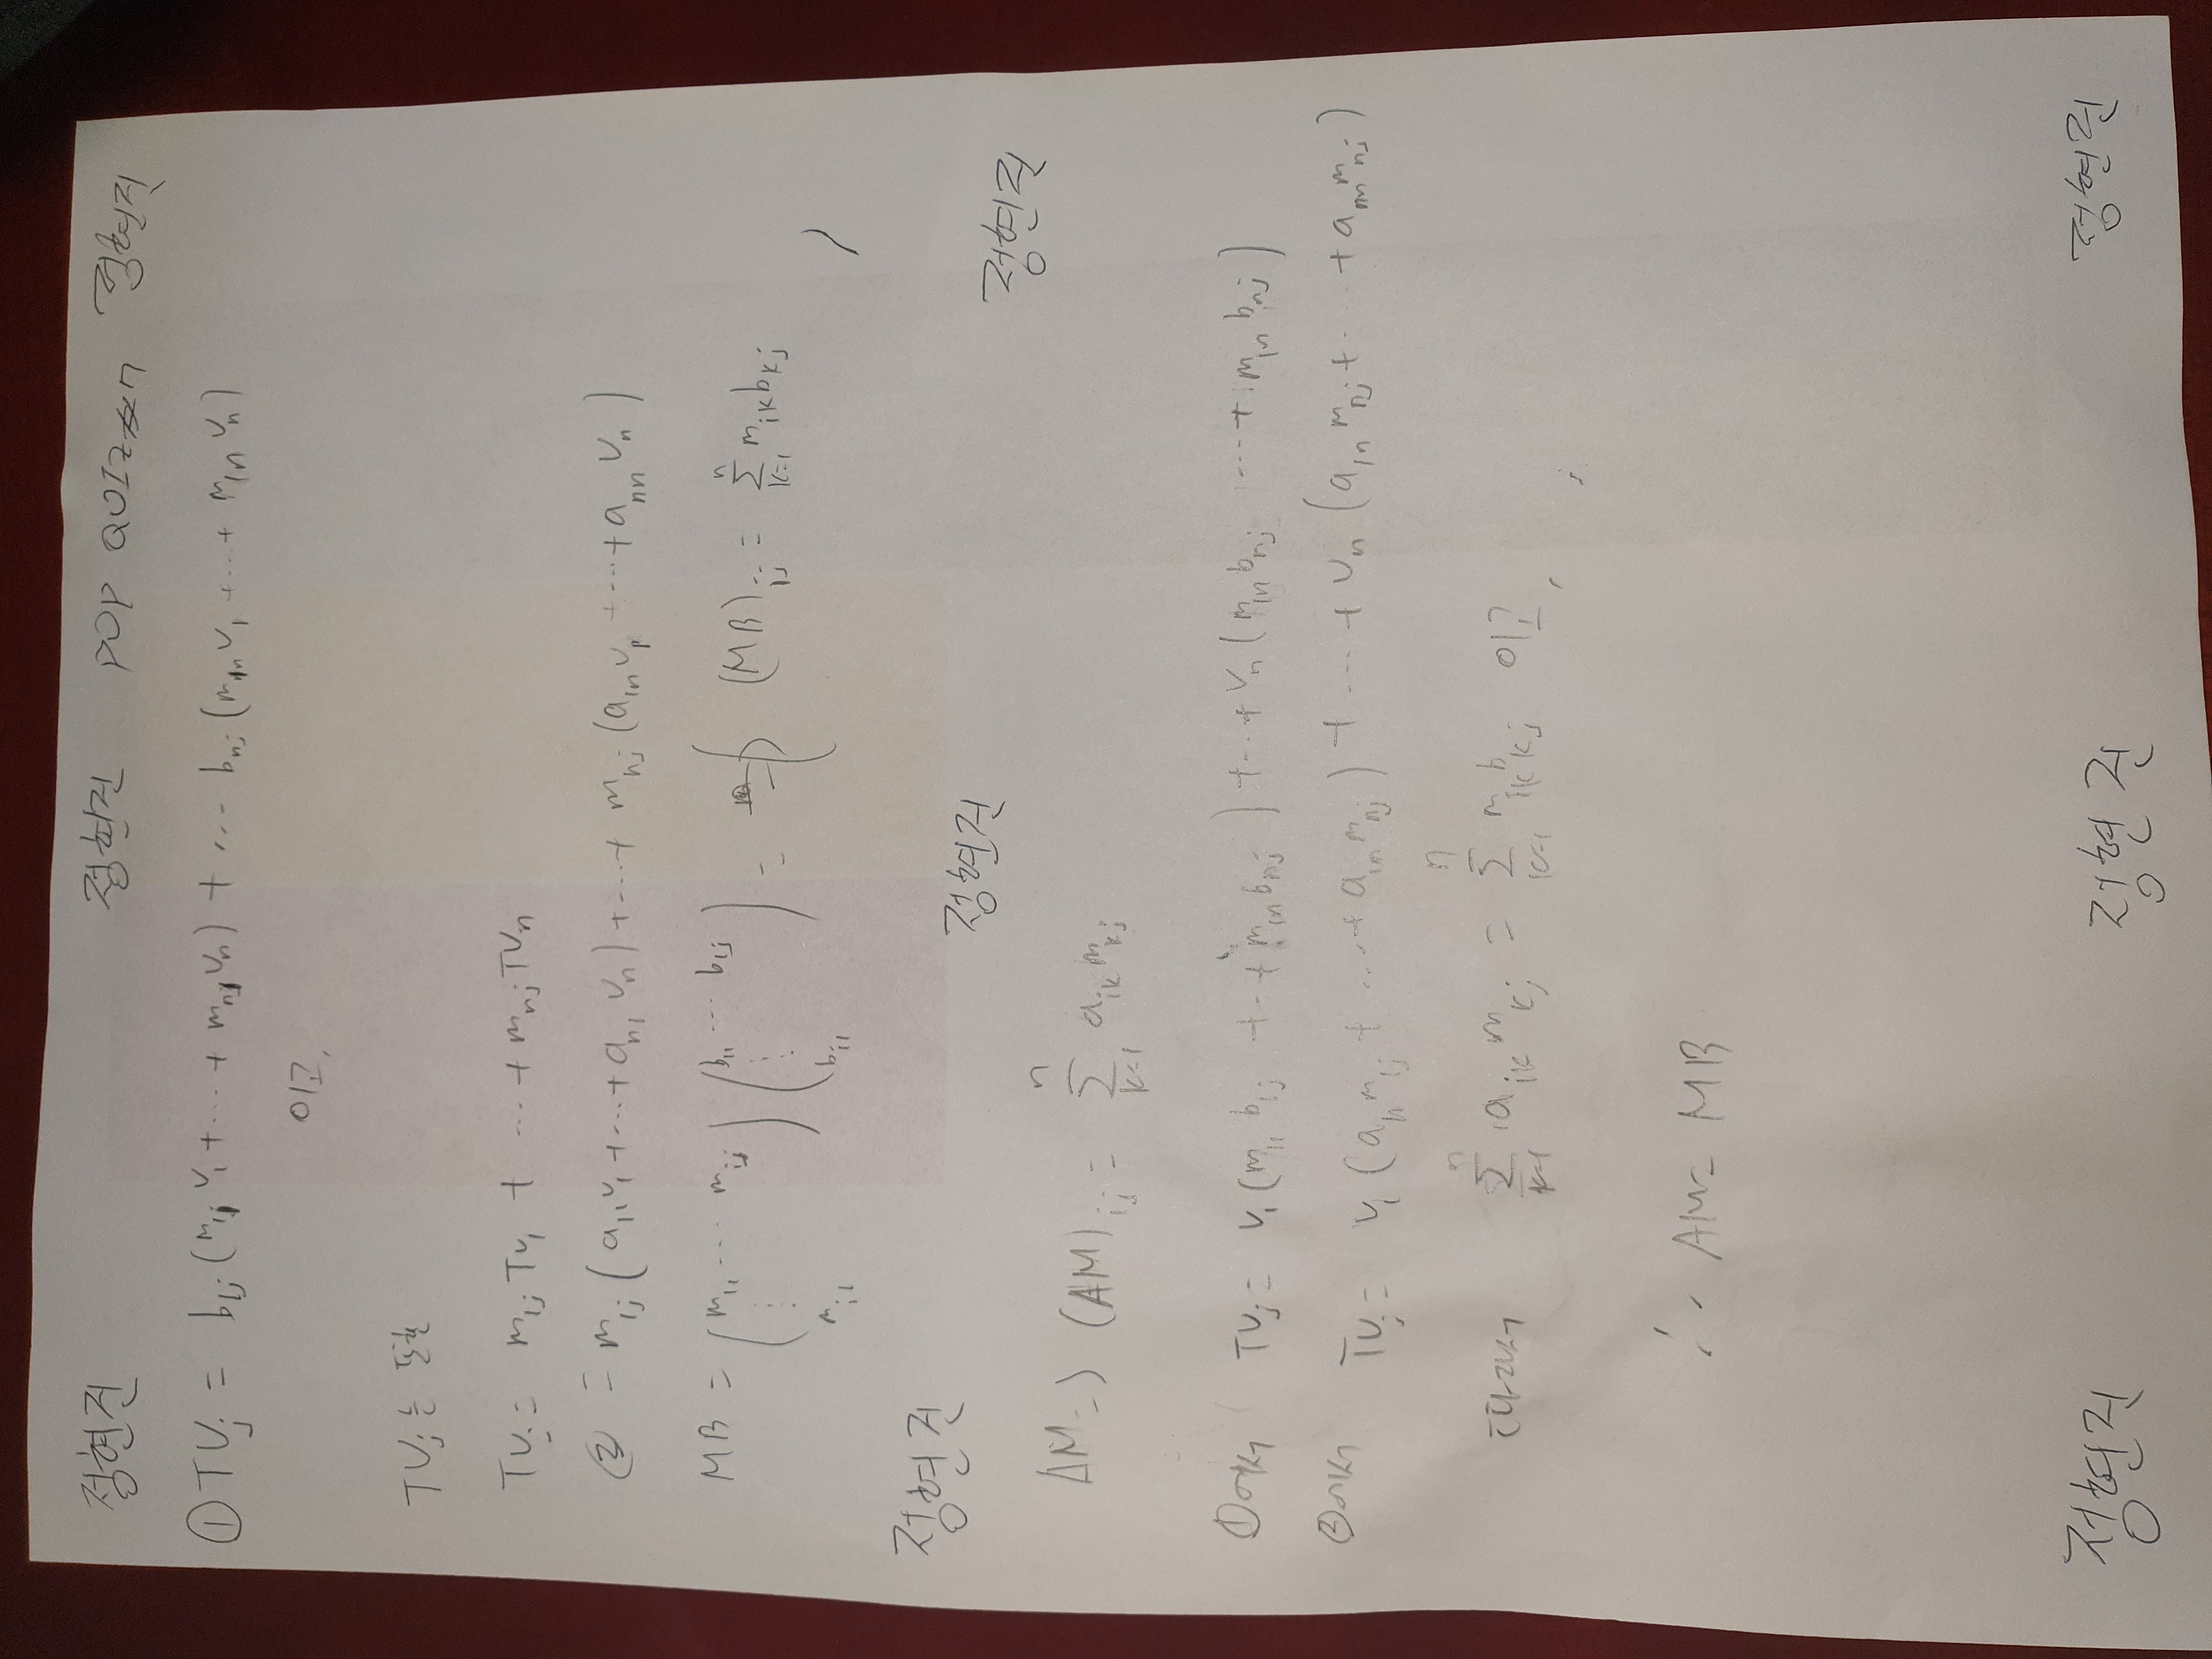 정현진 정현진 POP QUIZ #7 정현진
① TVⱼ = b₁ⱼ(m₁ⱼv₁+⋯+mₙⱼvₙ) + ⋯ bₙⱼ(mₙₙv₁+⋯+m₁ₙvₙ)
이고,
TVⱼ는 또한
TVⱼ = m₁ⱼTv₁ + ⋯ + mₙⱼTVₙ
② = m₁ⱼ(a₁₁v₁+⋯+aₙ₁vₙ)+⋯+ mₙⱼ(a₁ₙv₁+⋯+aₙₙvₙ)
MB = (m₁₁ ⋯ mᵢⱼ ⋮ mᵢ₁) (b₁₁ ⋯ b₁ⱼ ⋮ bᵢ₁) = ⇒ (MB)ᵢⱼ = Σₖ₌₁ⁿ mᵢₖbₖⱼ ,
정현진 정현진 정현진
AM ⇒ (AM)ᵢⱼ = Σₖ₌₁ⁿ aᵢₖmₖⱼ
①에서 TVⱼ = v₁(m₁₁b₁ⱼ +⋯+ m₁ₙbₙⱼ)+⋯+vₙ(m₁ₙbₙⱼ ⋯+ m₁ₙbₙⱼ)
②에서 TVⱼ = v₁(a₁₁m₁ⱼ+⋯+a₁ₙmₙⱼ)+⋯+vₙ(a₁ₙmₙⱼ+⋯+aₙₙmₙⱼ)
따라서 Σₖ₌₁ⁿ aᵢₖmₖⱼ = Σₖ₌₁ⁿ mᵢₖbₖⱼ 이고,
∴ AM = MB
정현진 정현진 정현진